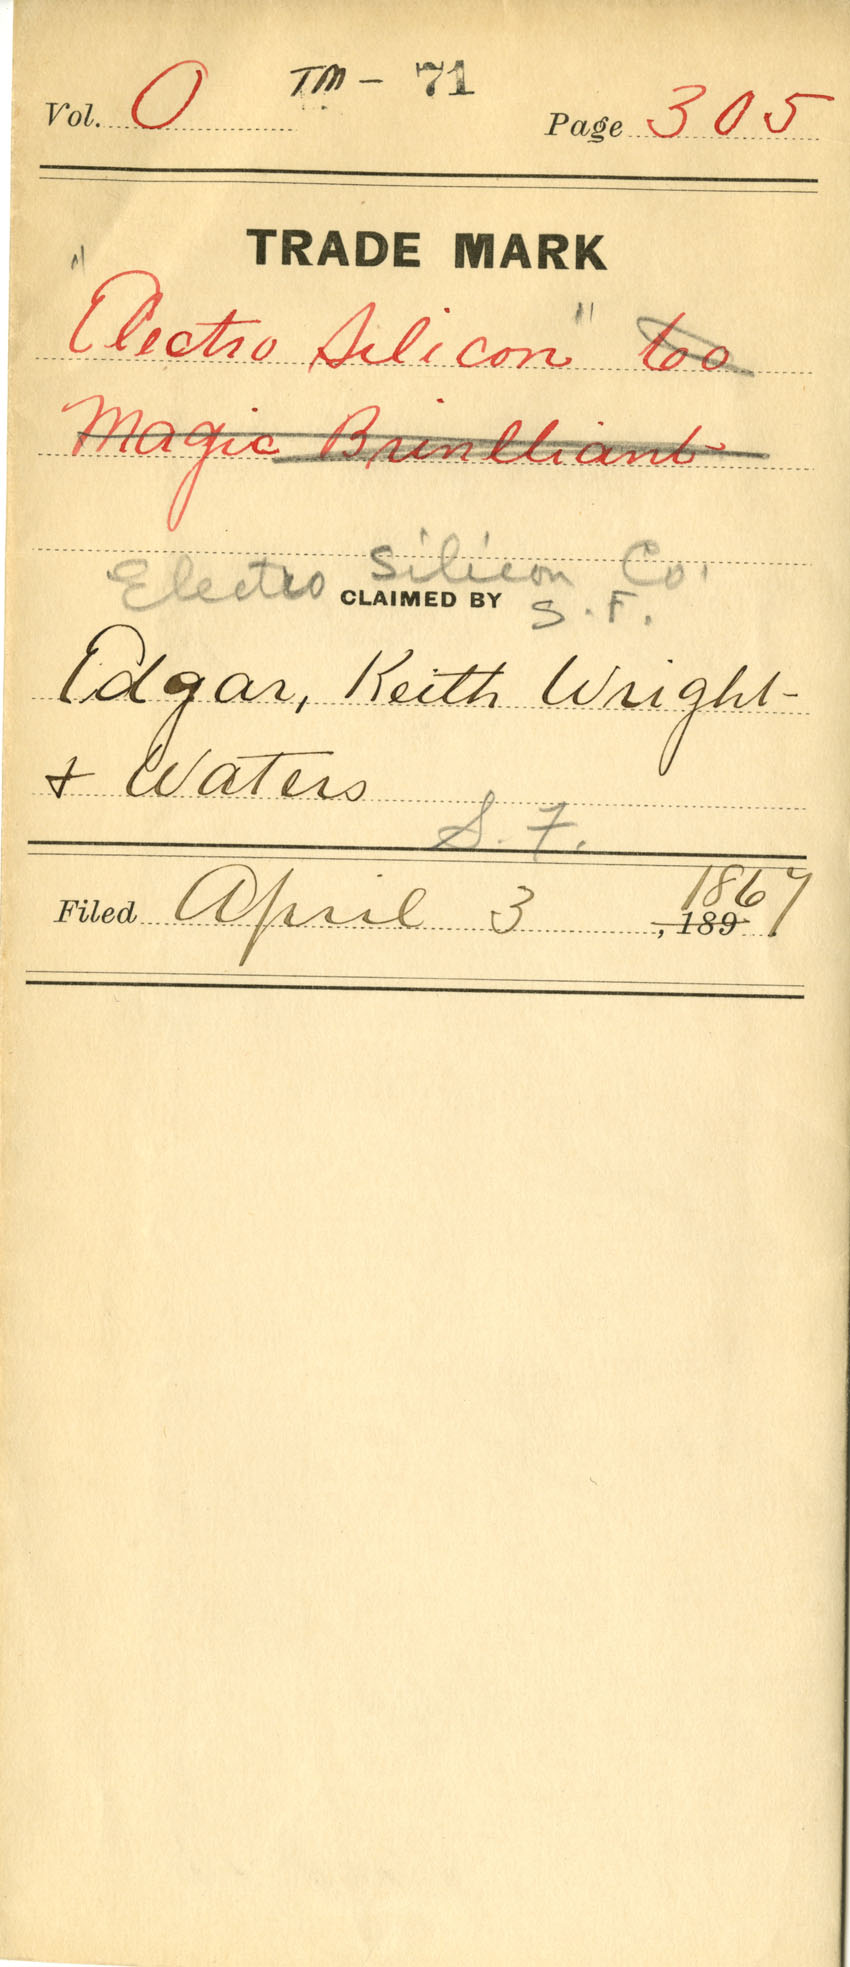 TM - 71
Vol. O Page 305
TRADE MARK
"Electro Silicon" Co
Magic Brinlliant
Electro Silicon Co.
CLAIMED BY S.F.
Edgar, Keith Wright
& Waters
S.F.
Filed April 3 1867
, 189